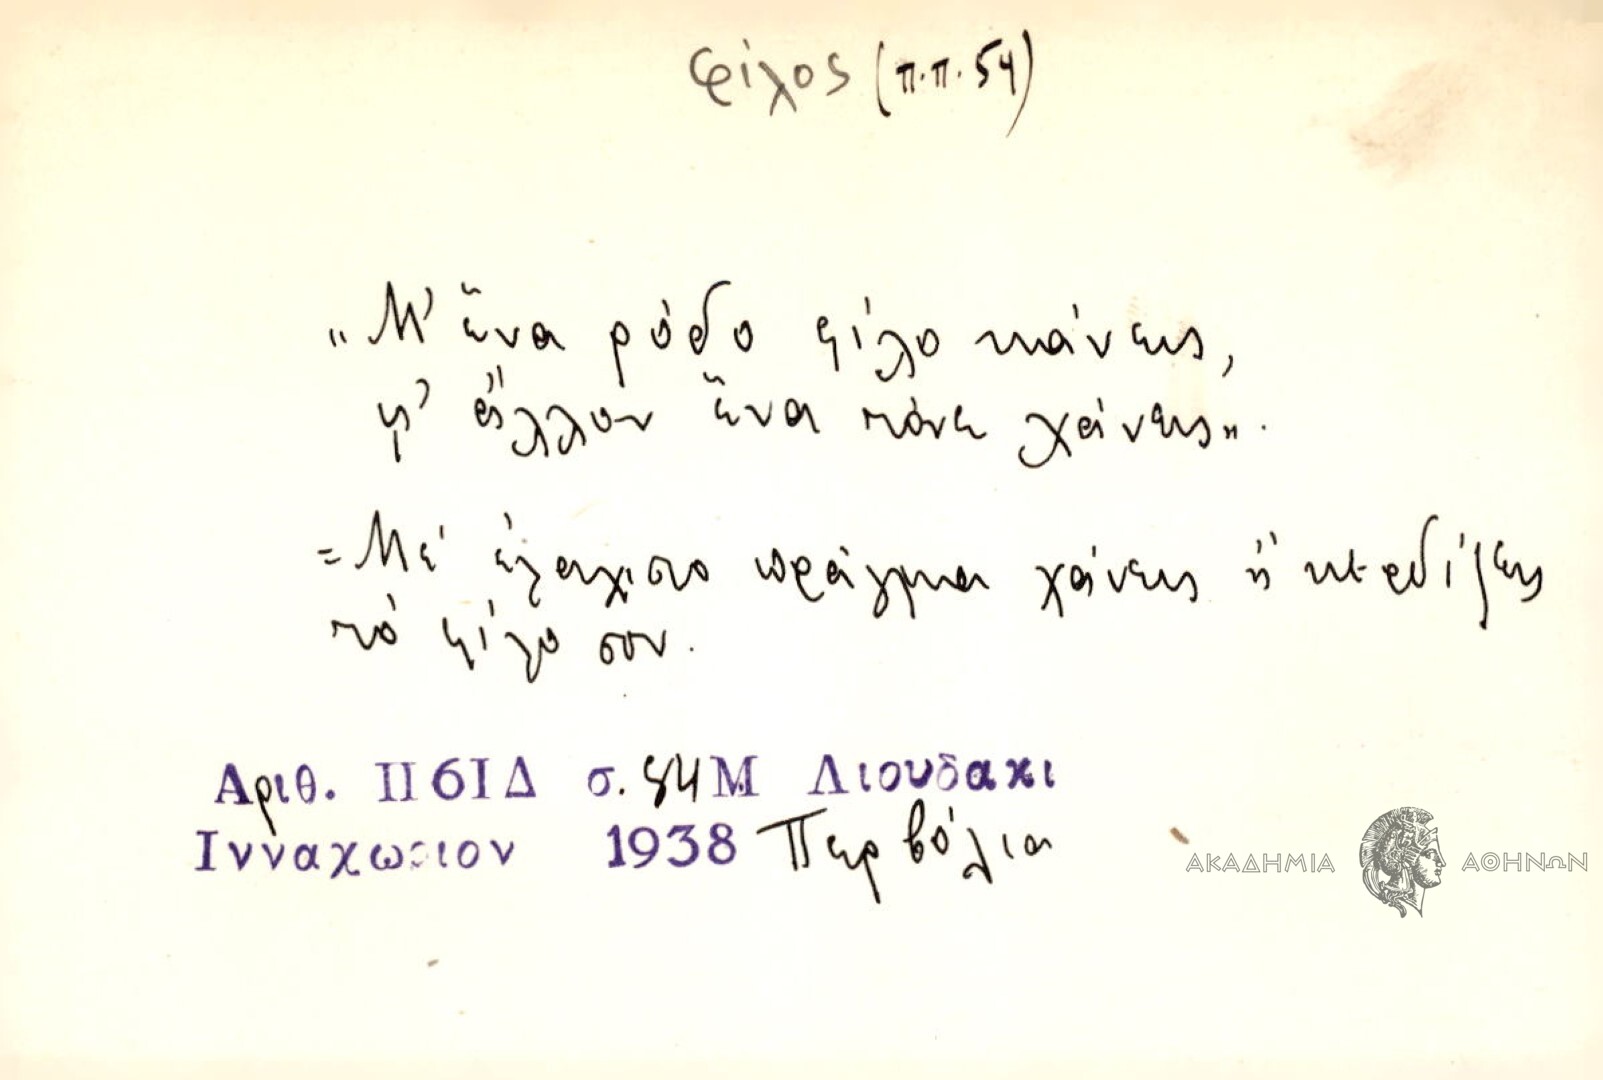 φίλος (π.π. 54)
"Μ' ἕνα ρόδο φίλο κάνεις,
μ' ἄλλον ἕνα τόνε χάνεις".
= Μέ ἐλαχιστο πράγμα χάνεις ἤ κερδίζεις
τό φίλο σου.
Αριθ. Π6ΙΔ σ. 84 Μ Λιουδακι
Ινναχωριον 1938 Περβόλια
ΑΚΑΔΗΜΙΑ ΑΘΗΝΩΝ